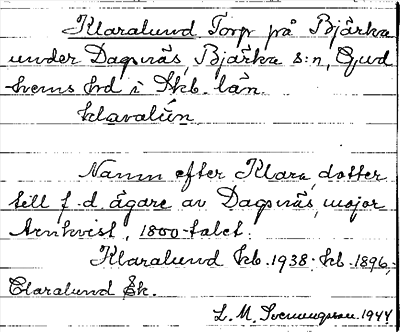 Klaralund Torp på Bjärka
under Dagsnäs, Bjärka s:n, Gud
hems hd i Skb. län.
klaralún
Namn efter Klara, dotter
till f. d. ägare av Dagsnäs, major
Arnkvist, 1800-talet.
Klaralund kb. 1938; kb. 1896;
Claralund Ek.
L. M. Svenungsson. 1944